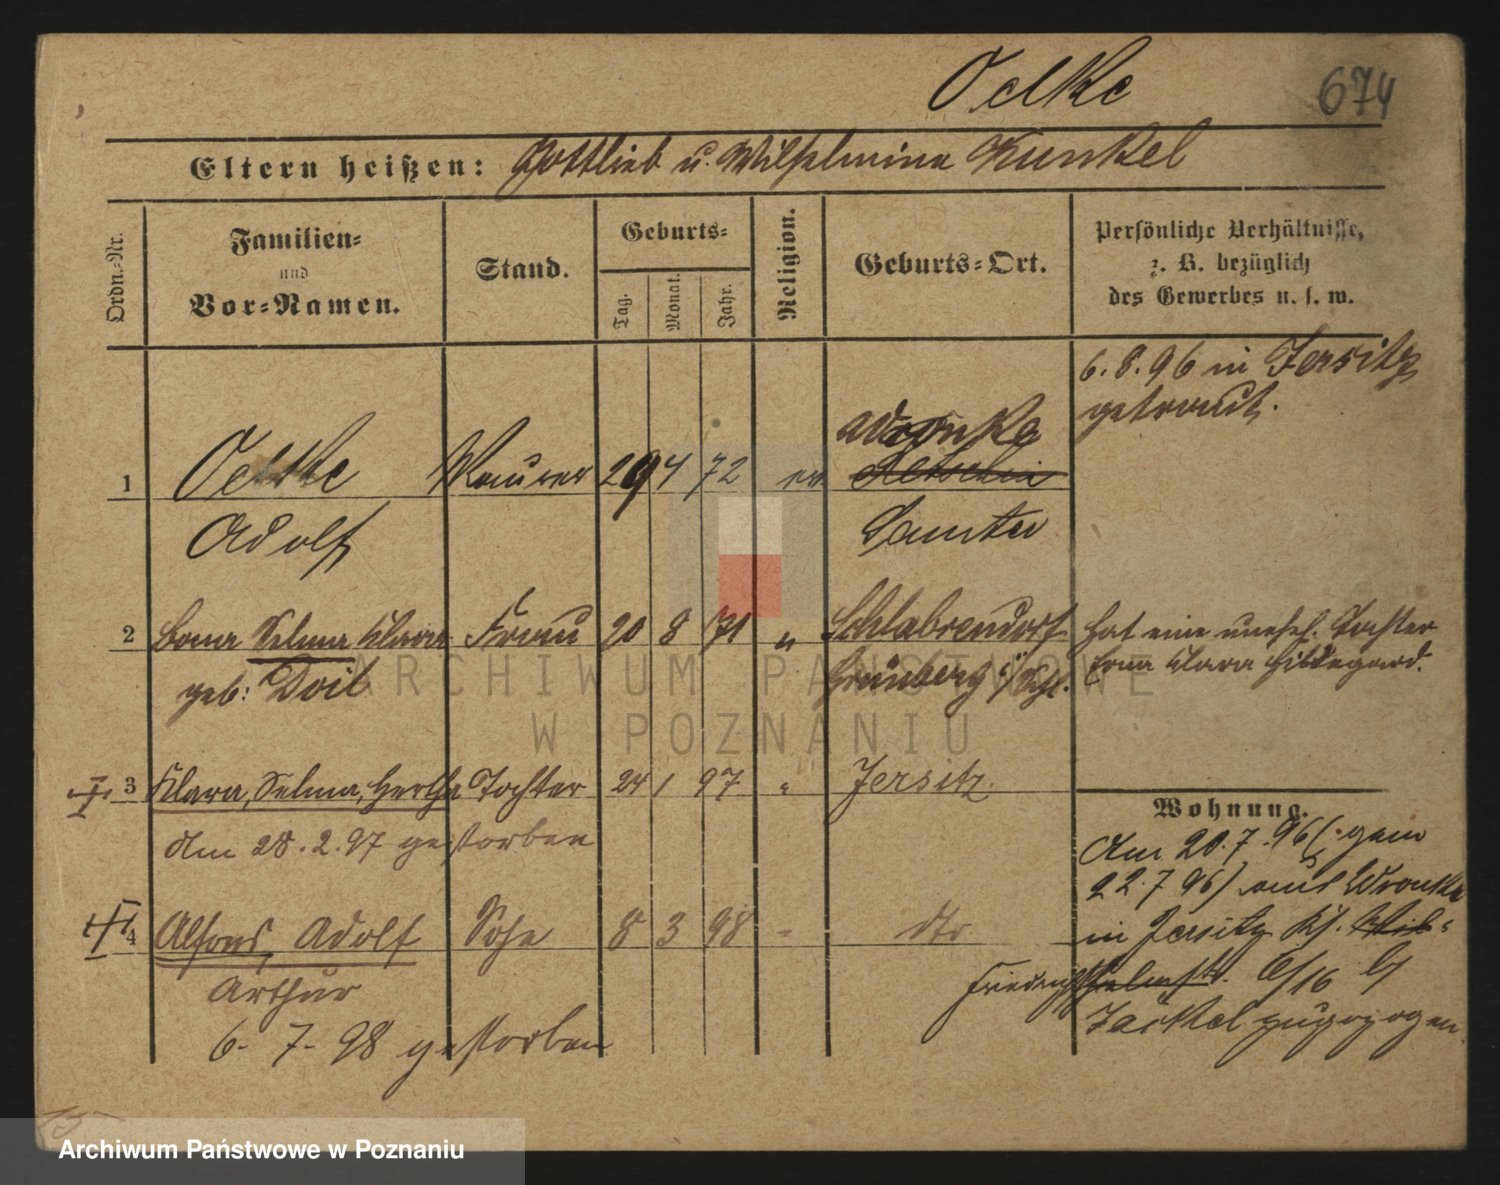 Oelke
674
Eltern heißen: Gottlieb u. Wilhelmina Kunkel
Ordn.-Nr.
Familien-
und
Vor-Namen.
Stand.
Geburts-
Tag.
Monat.
Jahr.
Religion.
Geburts-Ort.
Persönliche Verhältnisse,
z. B. bezüglich
des Gewerbes u. s. w.
6.8.96 in Jersitz
getraut.
Wronke
1 Oelke Maurer 29 4 72 ev
Adolf Samter
2 Selma Klara Frau 20 8 71 " Schlabrendorf
geb: Doil Grünberg i/Schl.
hat eine unehel. Tochter
Erna Klara Hildegard.
3 Klara, Selma, Hertha Tochter 24 1 97 " Jersitz.
Am 28.2.97 gestorben
4 Alfons, Adolf Sohn 8 3 98 - dto
Arthur
6-7-98 gestorben
Wohnung.
Am 20.7.96 (. gem
22.7 96) aus Wronke
in Jersitz Kl.
Friedrich 6/16 b/
Jäckel zugezogen
15
ARCHIWUM PAŃSTWOWE
W POZNANIU
Archiwum Państwowe w Poznaniu